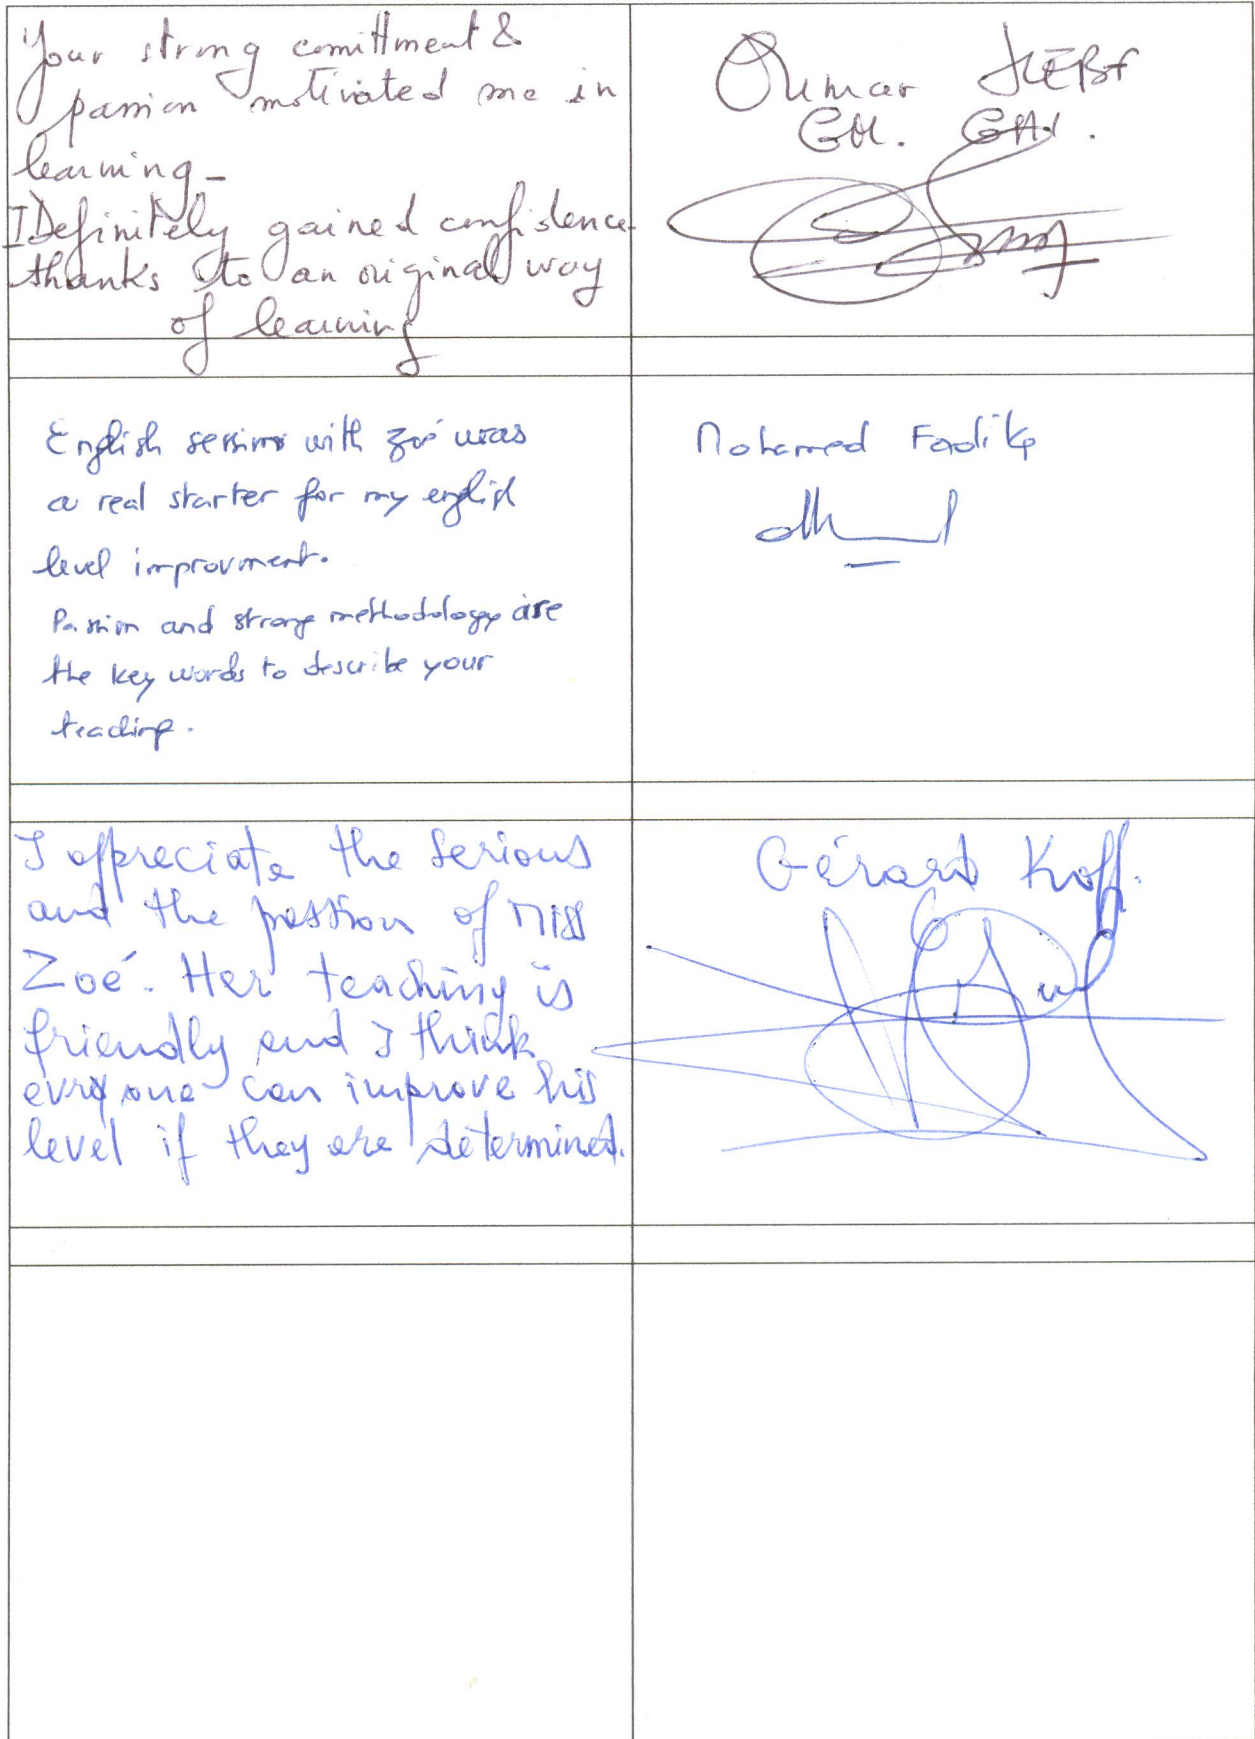 Your strong comittment &
passion motivated me in
learning_
I Definitely gained confidence
thanks to an original way
of learning
Oumar
English sessions with Zoé was
a real starter for my english
level improvment.
Passion and strong methodology are
the key words to describe your
teaching.
Mohamed Fadika
I appreciate the serious
and the passion of Miss
Zoé. Her teaching is
friendly and I think
everyone can improve his
level if they are determined.
Gérard Koffi